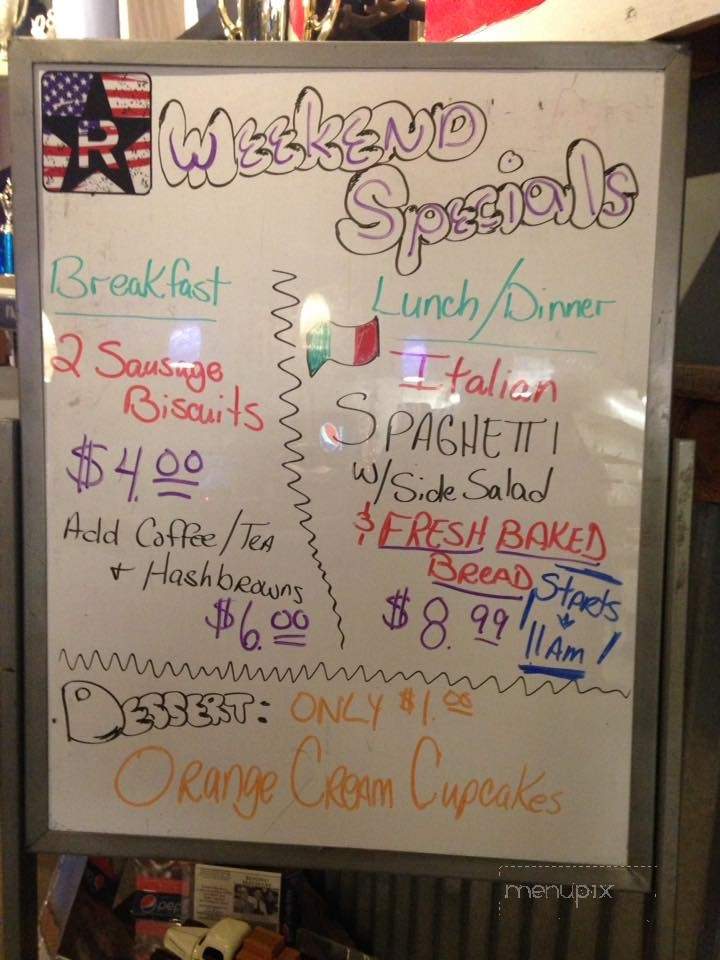 R
WEEKEND
Specials
Breakfast
2 Sausage
Biscuits
$4.00
Add Coffee/TEA
+ Hashbrowns
$6.00
Lunch/Dinner
Italian
SPAGHETTI
w/Side Salad
& FRESH BAKED
BREAD
$8.99
STARTS
11AM!
DESSERT: ONLY $1.00
ORange CReam Cupcakes
pepsi
menupix